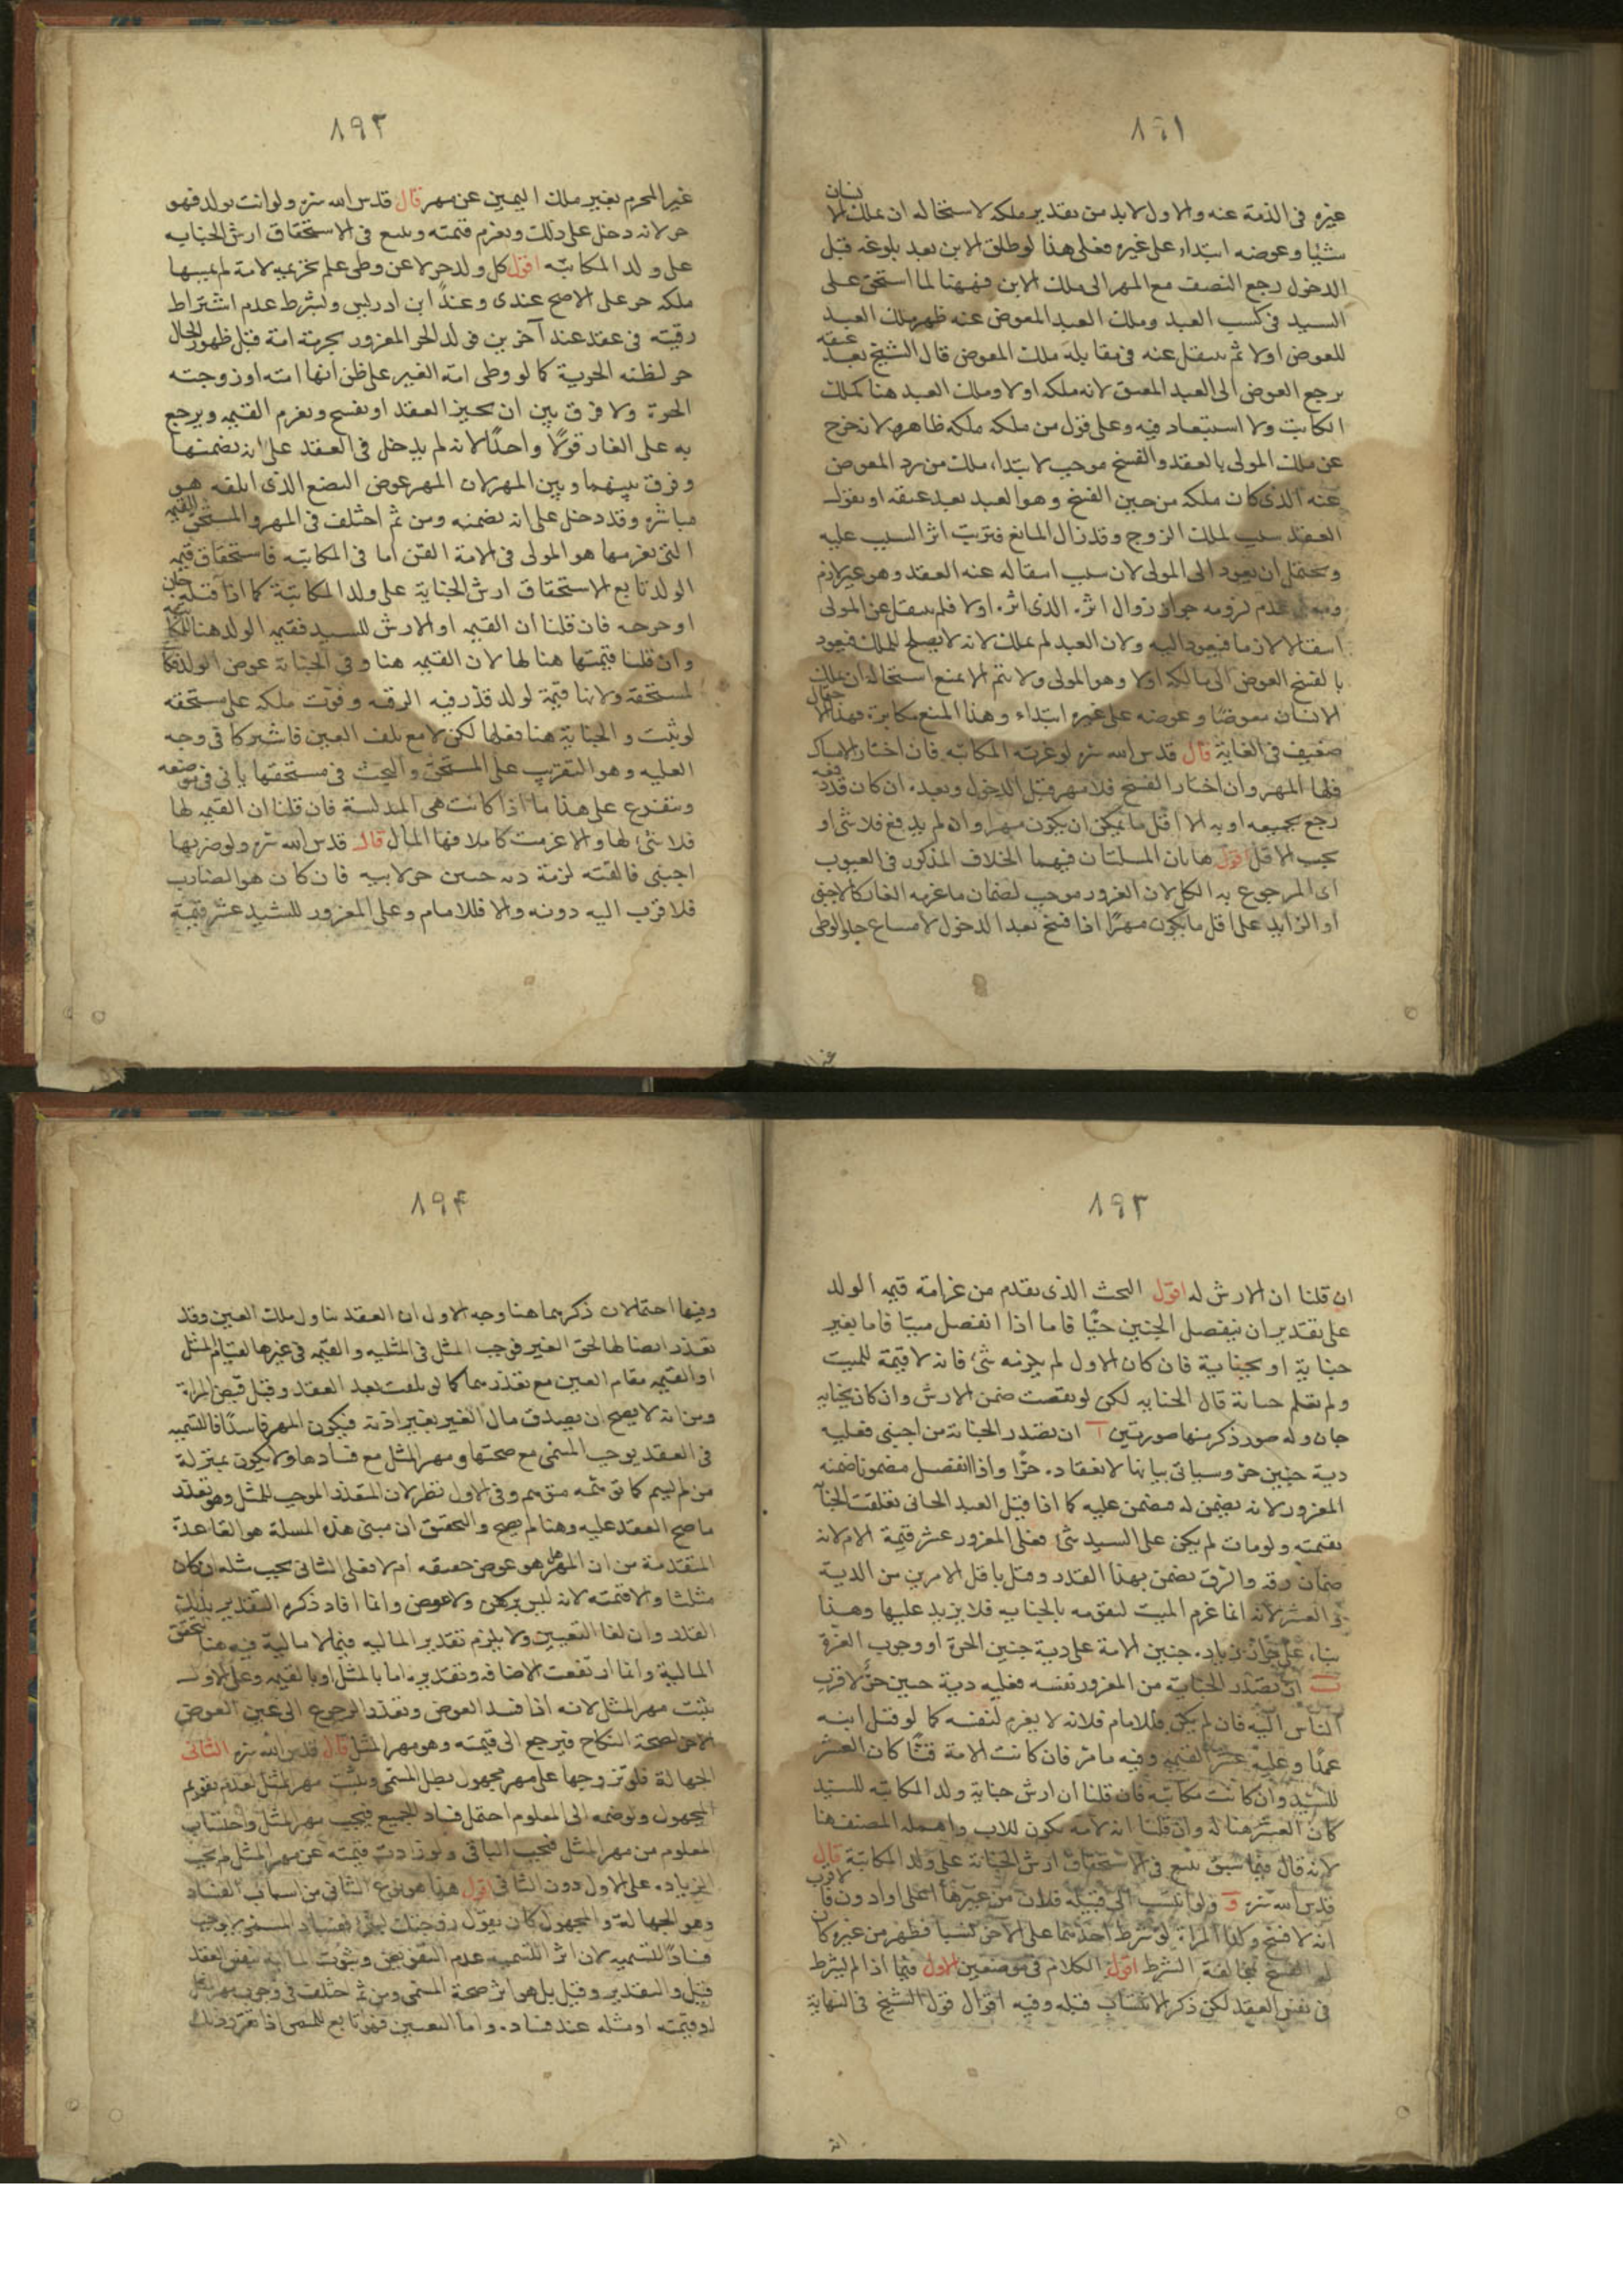 ٨٩١
غيره فى الذمة عنه والاول لابد من تقدير ملكه لاستحالة ان يملك الانسان
شيئا وعوضه ابتداء على غيره فعلى هذا لو طلق الابن بعد بلوغه قبل
الدخول رجع النصف مع المهر الى ملك الابن فههنا لما استحق على
السيد فى كسب العبد وملك العبد المعوض عنه ظهر ملك العبد
للعوض اولا ثم ينتقل عنه فى مقابلة ملك المعوض قال الشيخ بعد عتقه
يرجع العوض الى العبد المعتق لانه ملكه اولا وملك العبد هنا كملك
المكاتب ولا استبعاد فيه وعلى قول من ملكه ملكه ظاهر لانه خرج
عن ملك المولى بالعقد والفسخ موجب لابتداء ملك من رد المعوض
عنه الذى كان ملكه من حين الفسخ وهو العبد بعد عتقه او نقول
العقد سبب لملك الزوج وقد زال المانع فترتب اثر السبب عليه
ويحتمل ان يعود الى المولى لان سبب انتقاله عنه العقد وهو غير لازم
عدم لزومه جواز زوال اثره الذى اثره اولا فلم ينتقل عن المولى
انتقالا لازما فيعود اليه ولان العبد لم يملك لانه لا يصلح للملك فيعود
بالفسخ العوض الى مالكه اولا وهو المولى ولا يتم الا بمنع استحالة ان يملك
الانسان معوضا وعوضه على غيره ابتداء وهذا المنع مكابرة فهذا الاحتمال
ضعيف فى الغاية قال قدس الله سره لو غرته المكاتبة فان اختار الامساك
فلها المهر وان اختار الفسخ فلا مهر قبل الدخول وبعده ان كان قد دفعه
رجع بجميعه او به الا اقل ما يمكن ان يكون مهرا وان لم يدفع فلا شئ او
يجب الاقل اقول هاتان المسئلتان فيهما الخلاف المذكور فى العيوب
اى المرجوع به الكل لان الغرور موجب لضمان ما غرمه الغار كالاجنبى
او الزايد على اقل ما يكون مهرا اذا فسخ بعد الدخول لامتناع خلو الوطى
٨٩٢
غير المحرم بغير ملك اليمين عن مهر قال قدس الله سره ولو اتت بولد فهو
حر لانه دخل على ذلك ويغرم قيمته ويتبع فى الاستحقاق ارش الجناية
على ولد المكاتبة اقول كل ولد حر لا عن وطى علم تحريمه لامة لم يسبها
ملكه حر على الاصح عندى وعند ابن ادريس وبشرط عدم اشتراط
رقيته فى عقد عند آخرين فولد الحر المغرور بحرية امة قبل ظهور الحال
حر لظنه الحرية كما لو وطى امة الغير على ظن انها امته او زوجته
الحرة ولا فرق بين ان يجيز العقد او يفسخ ويغرم القيمة ويرجع
به على الغار قولا واحدا لانه لم يدخل فى العقد على انه يضمنها
وفرق بينهما وبين المهر لان المهر عوض البضع الذى اتلفه هو
مباشرة وقد دخل على انه يضمنه ومن ثم اختلف فى المهر والمستحق للقيمة
التى يغرمها هو المولى فى الامة القن اما فى المكاتبة فاستحقاق قيمة
الولد تابع لاستحقاق ارش الجناية على ولد المكاتبة كما اذا قتله جان
او جرحه فان قلنا ان القيمة او الارش للسيد فقيمة الولد هنا للمكا
وان قلنا قيمتها هنا لها لان القيمة هنا وفى الجناية عوض الولد فكا
لمستحقه ولانها قيمة لولد قدر فيه الرقية وفوت ملكه على مستحقه
لو يثبت والجناية هنا فعلها لكن لا مع تلف العين فاشتركا فى وجه
العلية وهو التقريب على المستحق والبحث فى مستحقها يأتى فى موضعه
ويتفرع على هذا ما اذا كانت هى المدلسة فان قلنا ان القيمة لها
فلا شئ لها والا غرمت كاملا فها المال قال قدس الله سره ولو ضربها
اجنبى فالقته لزمه دية جنين حر لابيه فان كان هو الضارب
فلاقرب اليه دونه والا فللامام وعلى المغرور للسيد عشر قيمة
٨٩٣
ان قلنا ان الارش له اقول البحث الذى تقدم من غرامة قيمة الولد
على تقدير ان ينفصل الجنين حيا فاما اذا انفصل ميتا فاما بغير
جناية او بجناية فان كان الاول لم يلزمه شئ فانه لا قيمة للميت
ولم تعلم حياته قال الجناية لكن لو نقصت ضمن الارش وان كان بجناية
جان وله صور ذكر منها صورتين آ ان تصدر الجناية من اجنبى فعليه
دية جنين حر وسياتى بيانها لانعقاده حرا واذا انفصل مضمونا ضمنه
المغرور لانه يضمن له فضمن عليه كما اذا قتل العبد الجانى تعلقت الجنآ
بقيمته ولو مات لم يكن على السيد شئ فعلى المغرور عشر قيمة الام لانه
ضمان رقه والرق يضمن بهذا القدر وقيل باقل الامرين من الدية
والعشر لانه انما غرم الميت لتقومه بالجناية فلا يزيد عليها وهذا
بناء على جواز زيادة جنين الامة على دية جنين الحرة او وجوب الغرة
ب ان تصدر الجناية من المغرور نفسه فعليه دية جنين حر لاقرب
الناس اليه فان لم يكن فللامام فلانه لا يغرم لنفسه كما لو قتل ابنه
عمدا وعليه عشر القيمة وفيه ما مر فان كانت الامة قنا كان العشر
للسيد وان كانت مكاتبة فان قلنا ان ارش جناية ولد المكاتبة للسيد
كان العشر هنا له وان قلنا انه لامه يكون للاب واهمله المصنف هنا
لانه قال فيما سبق يتبع فى الاستحقاق ارش الجناية على ولد المكاتبة قال
قدس الله سره و ولو انتسب الى قبيلة فبان من غيرها اعلى او ادون فالاقرب
انه لا فسخ وكذا المراة لو شرط احدهما على الاخر نسبا فظهر من غيره كان
له الفسخ لمخالفة الشرط اقول الكلام فى موضعين الاول فيما اذا لم يشترط
فى نفس العقد لكن ذكر الانتساب قبله وفيه اقوال قول الشيخ فى النهاية
٨٩۴
وفيها احتمالان ذكرهما هنا وجه الاول ان العقد تناول ملك العين وقد
تعذر ايصالها لحق الغير فوجب المثل فى المثليه والقيمة فى غيرها لقيام المثل
او القيمة مقام العين مع تعذرهما كما لو تلفت بعد العقد وقبل قبض المراة
ومن انه لا يصح ان يصدق مال الغير بغير اذنه فيكون المهر فاسدا فالتسمية
فى العقد يوجب المسمى مع صحتها ومهر المثل مع فسادها ولا يكون بمنزلة
من لم يسم وفى الاول نظر لان المتعذر الموجب للمثل وهو تعذر
ما صح العقد عليه وهنا لم يصح والتحقيق ان مبنى هذه المسئلة هو القاعدة
المتقدمة من ان المهر هل هو عوض حقيقه ام لا فعلى الثانى يجب مثله ان كان
مثليا والا قيمته لانه ليس بركن ولا عوض وانما افاد ذكره التقدير بذلك
القدر وان لغا التعيين ولا يلزم تقدير الماليه فيما لا مالية فيه هنا تحقق
المالية وانما ارتفعت الاضافه وتقديره اما بالمثل او بالقيمة وعلى الاول
يثبت مهر المثل لانه اذا فسد العوض وتعذر الرجوع الى عين العوض
الاخر لصحة النكاح فيرجع الى قيمته وهو مهر المثل قال قدس الله سره الثانى
الجهالة فلو تزوجها على مهر مجهول بطل المسمى وثبت مهر المثل لعدم تقويم
المجهول ولو ضمه الى المعلوم احتمل فساد الجميع فيجب مهر المثل واحتساب
المعلوم من مهر المثل فيجب الباقى ولو زادت قيمته عن مهر المثل لم يجب
الزيادة على الاول دون الثانى اقول هذا هو النوع الثانى من اسباب الفساد
وهو الجهالة والمجهول كان يقول زوجتك بشئ
فساد التسمية لان اثر التسمية عدم التفويض وثبوت بنفس العقد
قبل والتقدير وقيل بل هو اثر صحة المسمى ومن ثم اختلف فى وجوب مهر المثل
او قيمته او مثله عند فساده واما التعيين فهو تابع للمسمى اذا تقرر ذلك